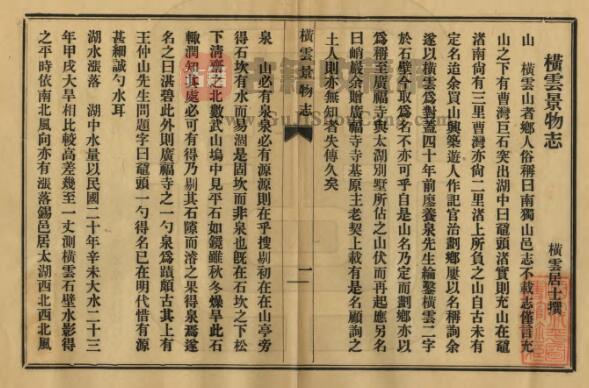 橫雲景物志
橫雲居士撰
山　橫雲山者鄉人俗稱曰南獨山邑志不載志僅言充
山之下有曹灣巨石突出湖中曰黿頭渚實則充山在黿
渚南尙有二里曹灣亦尙一二里渚上所負之山自古未有
定名造余買山興築遊人作記官治劃鄉屢以名稱詢余
遂以橫雲爲對蓋四十年前廖養泉先生綸鑿橫雲二字
於石壁今取爲名不亦可乎自是山名乃定而劃鄉亦以
爲稱至廣福寺與太湖別墅所佔之山伏而再起應另名
曰峭巖余贈廣福寺寺基原主老契上載有是名顧詢之
土人則亦無知者失傳久矣
橫雲景物志
一
泉　山必有泉泉必有源源則在乎搜剔初在在山亭旁
得石坎有水而易涸是固坎而非泉也旣在石坎之下松
下淸齋之北數武山塢中見平石如鏡雖秋冬燥旱此石
輒潤知其處必可有得乃剔其石隙而濬之果得泉焉遂
名之曰洪碧此外則廣福寺之一勺泉爲蹟頗古其上有
王仲山先生問題字曰黿頭一勺得名已在明代惜有源
甚細誠勺水耳
湖水漲落　湖中水量以民國二十年辛未大水二十三
年甲戌大旱相比較高差幾至一丈測橫雲石壁水影得
之平時依南北風向亦有漲落錫邑居太湖西北西北風